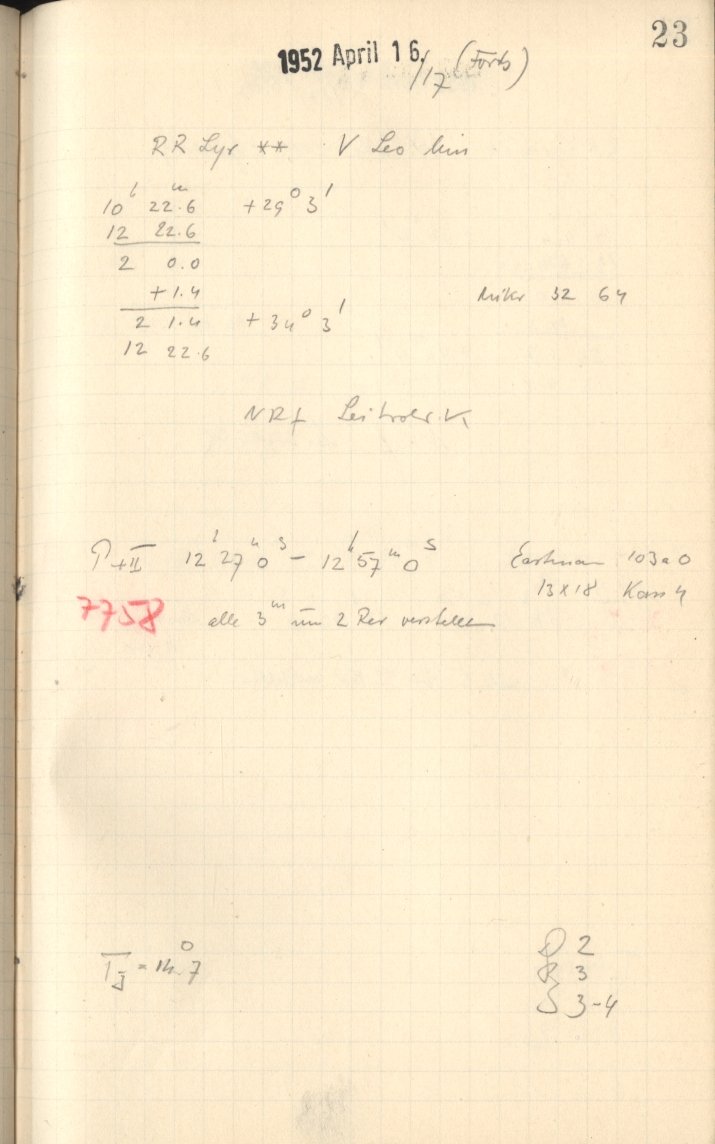 23
1952 April 16./17 (Forts)
RR Lyr ** V Leo Min
10h 22m.6 +29° 3'
12 22.6
2 0.0
+1.4
2 1.4 +34° 3'
Mikr 32 64
12 22.6
NRf Leitrohr V
P+II 12h 27m 0s – 12h 57m 0s Eastman 103a0
13x18 Kass 4
7758 alle 3m um 2 Rev verstellen
TJ = 14°.7
D 2
R 3
S 3-4